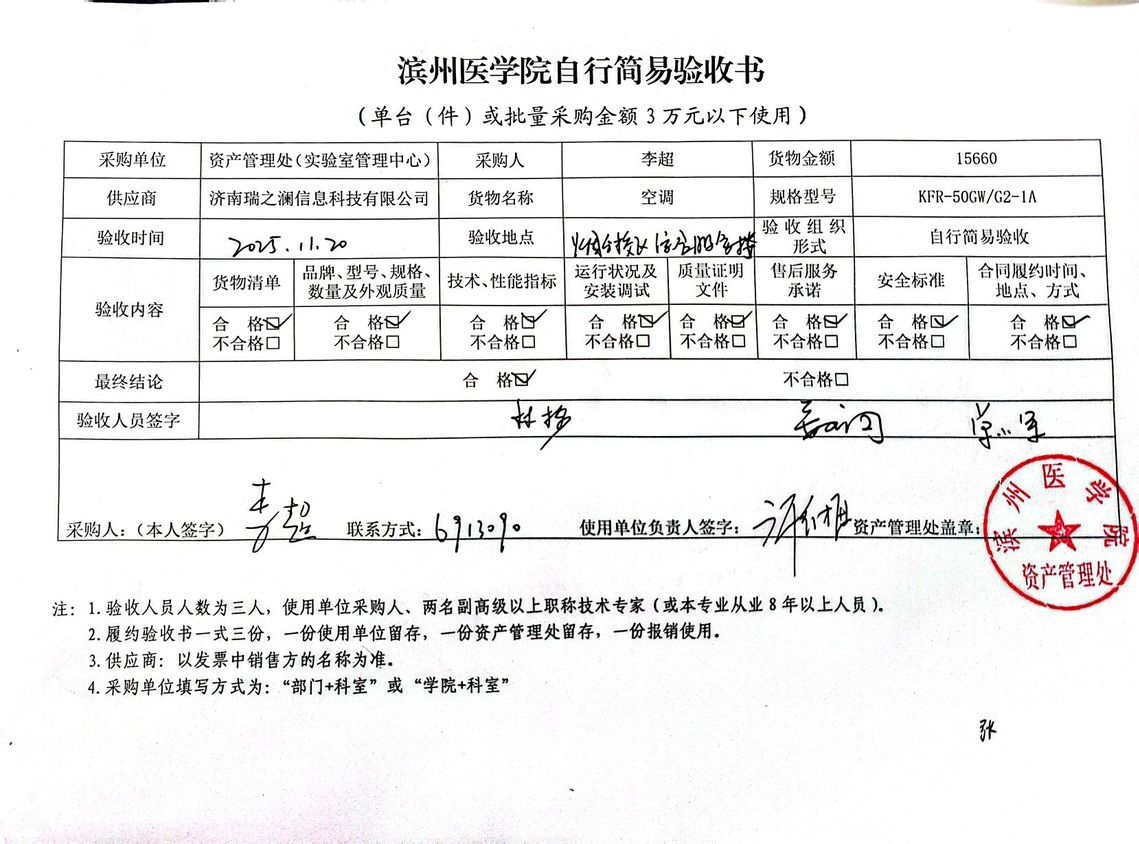 滨州医学院自行简易验收书
(单台(件)或批量采购金额3万元以下使用)
采购单位 资产管理处(实验室管理中心) 采购人 李超 货物金额 15660
供应商 济南瑞之澜信息科技有限公司 货物名称 空调 规格型号 KFR-50GW/G2-1A
验收时间 2025.11.20 验收地点 验收组织形式 自行简易验收
验收内容 货物清单 品牌、型号、规格、数量及外观质量 技术、性能指标 运行状况及安装调试 质量证明文件 售后服务承诺 安全标准 合同履约时间、地点、方式
合格☑ 合格☑ 合格☑ 合格☑ 合格☑ 合格☑ 合格☑ 合格☑
不合格□ 不合格□ 不合格□ 不合格□ 不合格□ 不合格□ 不合格□ 不合格□
最终结论 合格☑ 不合格□
验收人员签字
采购人:(本人签字) 李超 联系方式: 6913090 使用单位负责人签字: 资产管理处盖章:
滨州医学院
资产管理处
注: 1.验收人员人数为三人,使用单位采购人、两名副高级以上职称技术专家(或本专业从业8年以上人员)。
2.履约验收书一式三份,一份使用单位留存,一份资产管理处留存,一份报销使用。
3.供应商:以发票中销售方的名称为准。
4.采购单位填写方式为:“部门+科室”或“学院+科室”
张